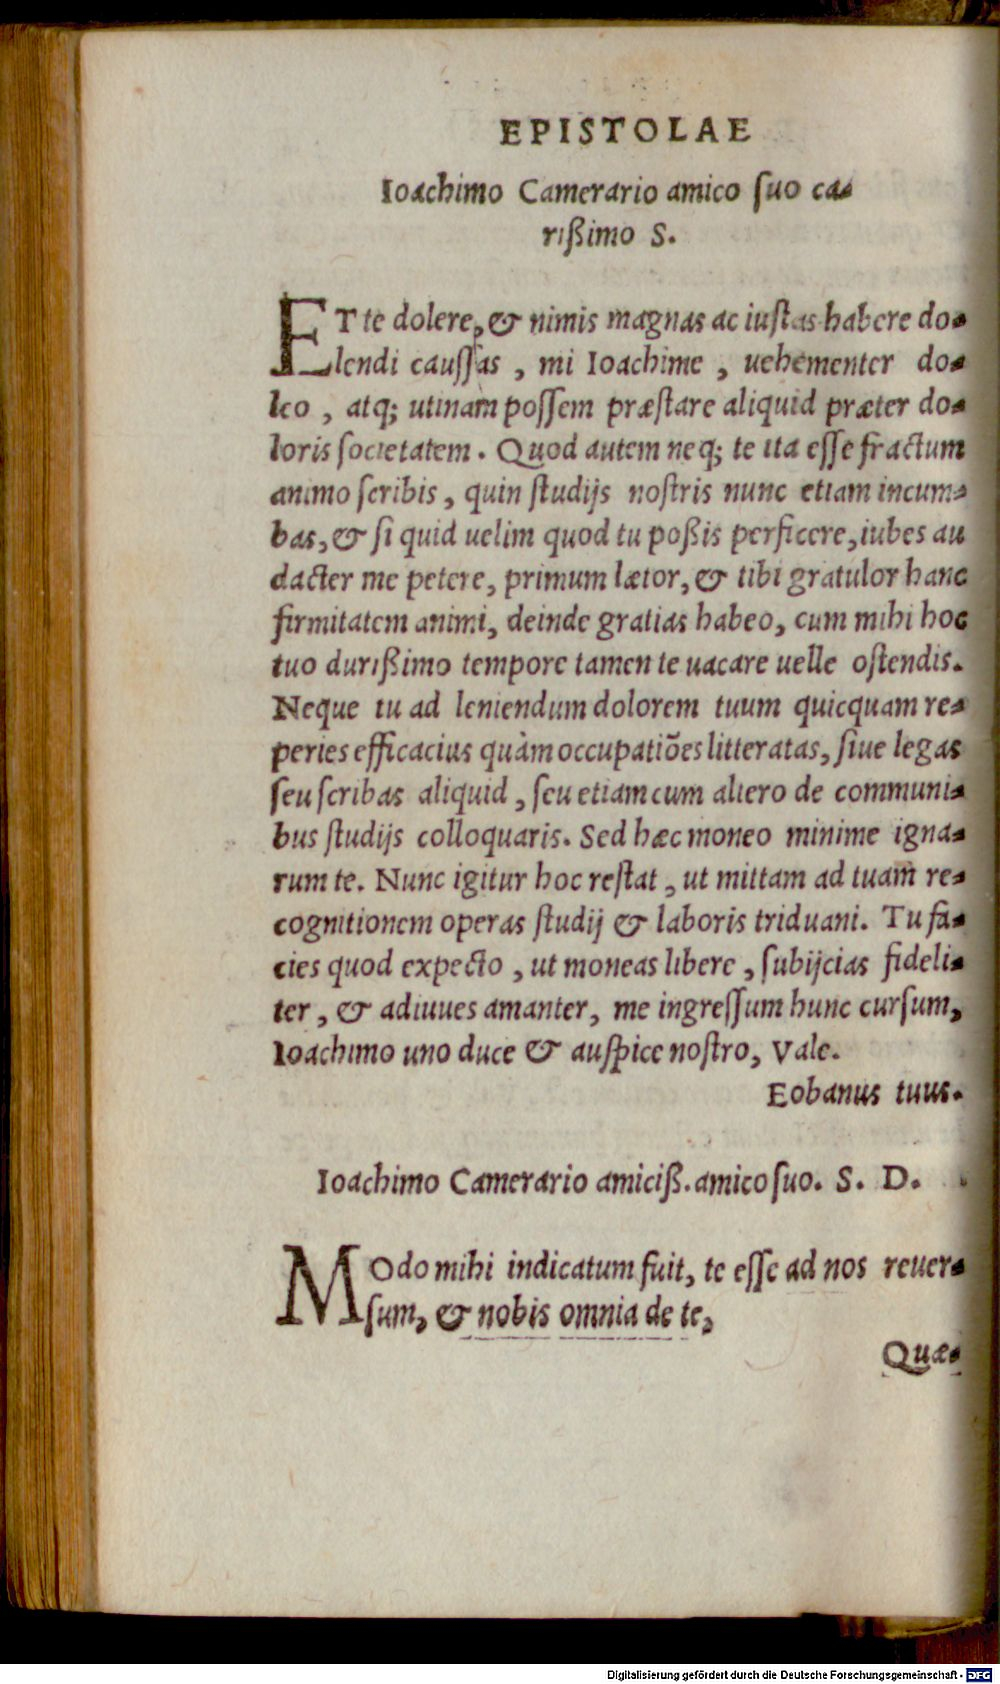 EPISTOLAE
Ioachimo Camerario amico ſuo ca-
rißimo S.
ET te dolere, & nimis magnas ac iuſtas habere do-
lendi cauſſas, mi Ioachime, uehementer do-
leo, atq; utinam poſſem præſtare aliquid præter do-
loris ſocietatem. Quod autem neq; te ita eſſe fractum
animo ſcribis, quin ſtudijs noſtris nunc etiam incum-
bas, & ſi quid uelim quod tu poßis perficere, iubes au
dacter me petere, primum lætor, & tibi gratulor hanc
firmitatem animi, deinde gratias habeo, cum mihi hoc
tuo durißimo tempore tamen te uacare uelle oſtendis.
Neque tu ad leniendum dolorem tuum quicquam re-
peries efficacius quàm occupatiões litteratas, ſiue legas
ſeu ſcribas aliquid, ſeu etiam cum altero de communi-
bus ſtudijs colloquaris. Sed hæc moneo minime igna-
rum te. Nunc igitur hoc reſtat, ut mittam ad tuam re-
cognitionem operas ſtudij & laboris triduani. Tu fa-
cies quod expecto, ut moneas libere, ſubijcias fideli-
ter, & adiuues amanter, me ingreſſum hunc curſum,
Ioachimo uno duce & auſpice noſtro, Vale.
Eobanus tuus.
Ioachimo Camerario amiciß. amico ſuo. S. D.
MOdo mihi indicatum fuit, te eſſe ad nos reuer-
ſum, & nobis omnia de te,
Quæ-
Digitalisierung gefördert durch die Deutsche Forschungsgemeinschaft - DFG